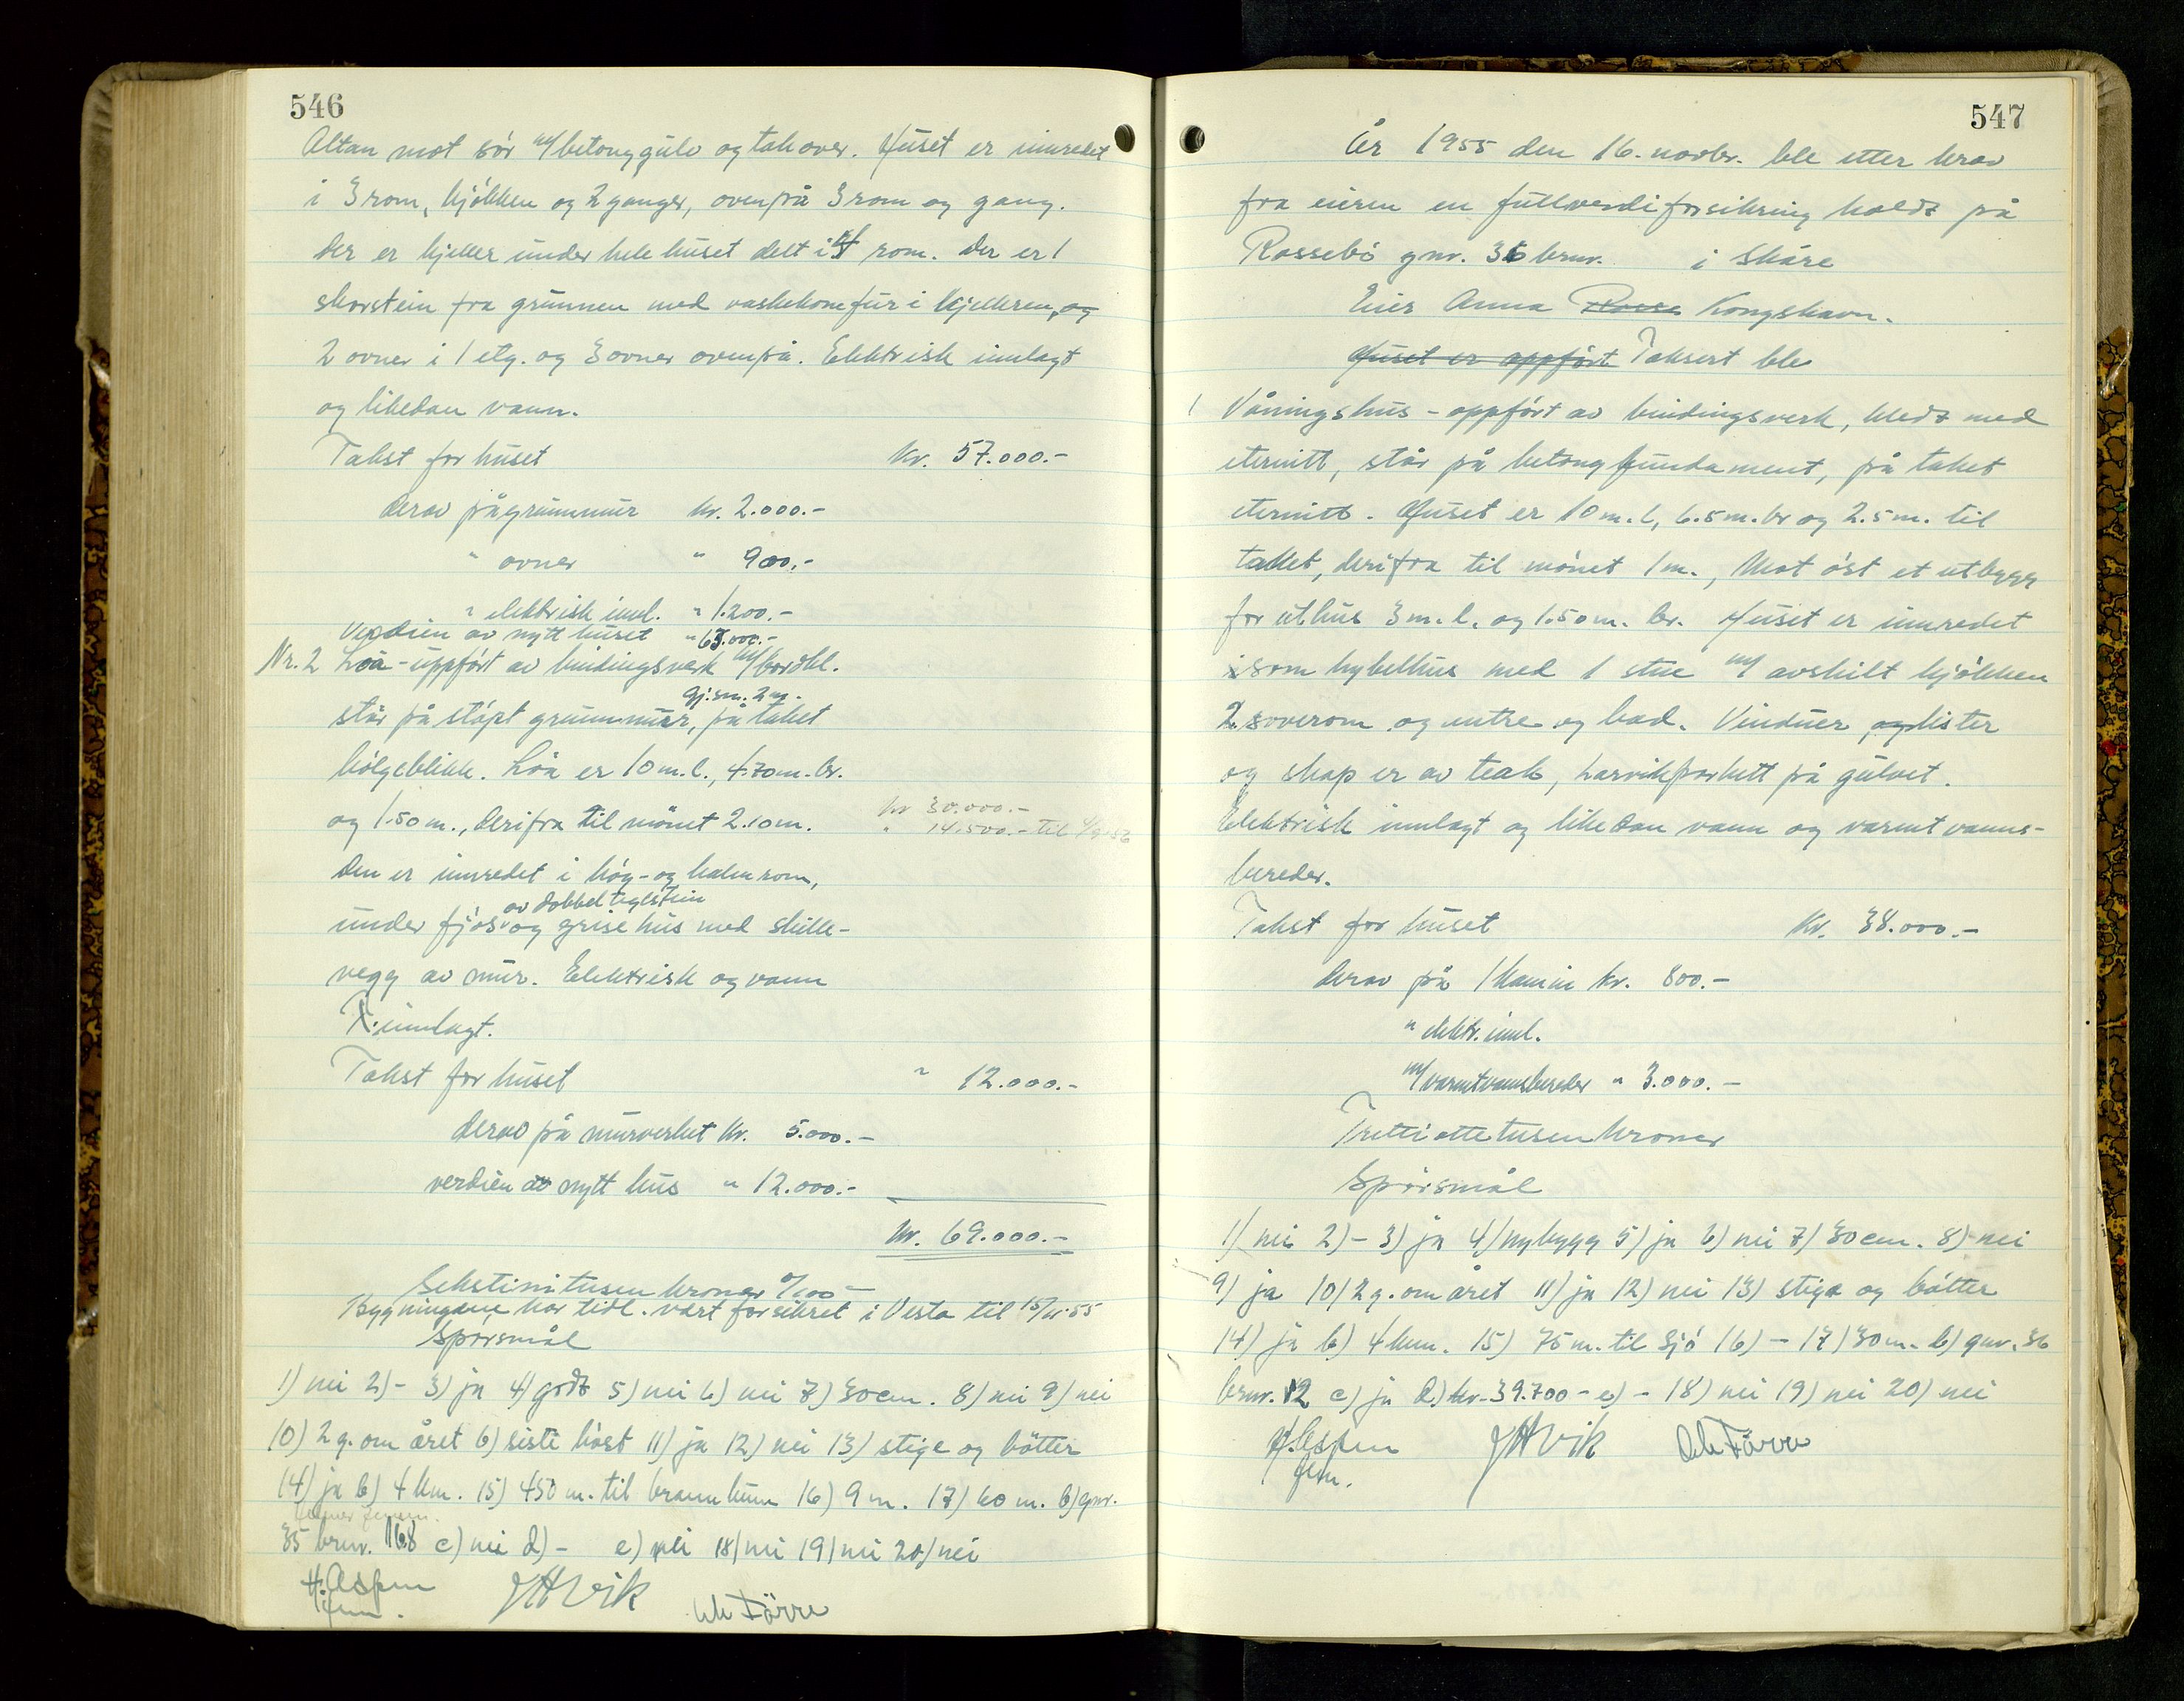 546
Altan mot sör m/betonggulv og tak over. Huset er innredet
i 3 rom, kjökken og 2 ganger, ovenpå 3 rom og gang.
Der er kjeller under hele huset delt i 4 rom. Der er 1
skorstein fra grunnen med vaskekomfur i kjelleren, og
2 ovner i 1 etg. og 3 ovner ovenpå. Elektrisk innlagt
og likedan vann.
Takst for huset kr. 57.000.-
derav på grunnmur kr. 2.000.-
" ovner " 900.-
" elektrisk innl. " 1.200.-
Verdien av nytt huset " 65.000.-
Nr. 2 Löa - uppfört av bindingsverk m/bordkl.
gj.sn. 2 m.
står på stöpt grunnmur, på taket
bölgeblikk. Löa er 10 m. l., 4.70 m. br.
og 1.50 m., derifra til mönet 2.10 m. kr 30.000.-
" 14.500.- til
Den er innredet i höy- og halm rom,
av dobbel teglstein
under fjös og grisehus med skille-
vegg av mur. Elektrisk og vann
innlagt.
Takst for huset " 12.000.-
derav på murverket kr. 5.000.-
verdien av nytt hus " 12.000.-
kr. 69.000.-
Sekstinitusen kroner 0/00
Bygningane har tidl. vært forsikret i Vesta til 15/11-55
Spörsmål
1) nei 2) - 3) ja 4) godt 5) nei 6) nei 7) 30 cm. 8) nei 9) nei
10) 2 g. om året b) siste höst 11) ja 12) nei 13) stige og bötter
14) ja b) 4 km. 15) 450 m. til brannkum 16) 9 m. 17) 60 m. b) gnr.
35 brnr. 168 c) nei d) - e) nei 18) nei 19) nei 20) nei
H. Aspen JHVik Ole Förre
fm.
547
År 1955 den 16. novbr. ble etter krav
fra eieren en fullverdiforsikring holdt på
Rossebö gnr. 36 brnr. i Skåre
Eier Anna Rosse Kongshavn.
Huset er oppfört Taksert ble
1 Våningshus - oppfört av bindingsverk, kledt med
eternitt, står på betongfundament, på taket
eternitt. Huset er 10 m. l, 6.5 m. br og 2.5 m. til
taket, derifra til mönet 1 m., Mot öst et utbygg
for uthus 3 m. l. og 1.50 m. br. Huset er innredet
som hybelhus med 1 stue m/ avskilt kjökken
2 soverom og entre og bad. Vinduer, og lister
og skap er av teak, Larvikparkett på gulvet.
Elektrisk innlagt og likedan vann og varmtvanns-
bereder.
Takst for huset kr. 38.000.-
derav på 1 kamin kr. 800.-
" elektr. innl.
m/varmtvannsbereder " 3.000.-
Trettiottetusen kroner
Spörsmål
1) nei 2) - 3) ja 4) nybygg 5) ja 6) nei 7) 30 cm. 8) nei
9) ja 10) 2 g. om året 11) ja 12) nei 13) stige og bötter
14) ja b) 4 km. 15) 75 m. til sjö 16) - 17) 30 m. b) gnr. 36
brnr. 12 c) ja d) kr. 39.700 - e) - 18) nei 19) nei 20) nei
H. Aspen JHVik Ole Förre
fm.